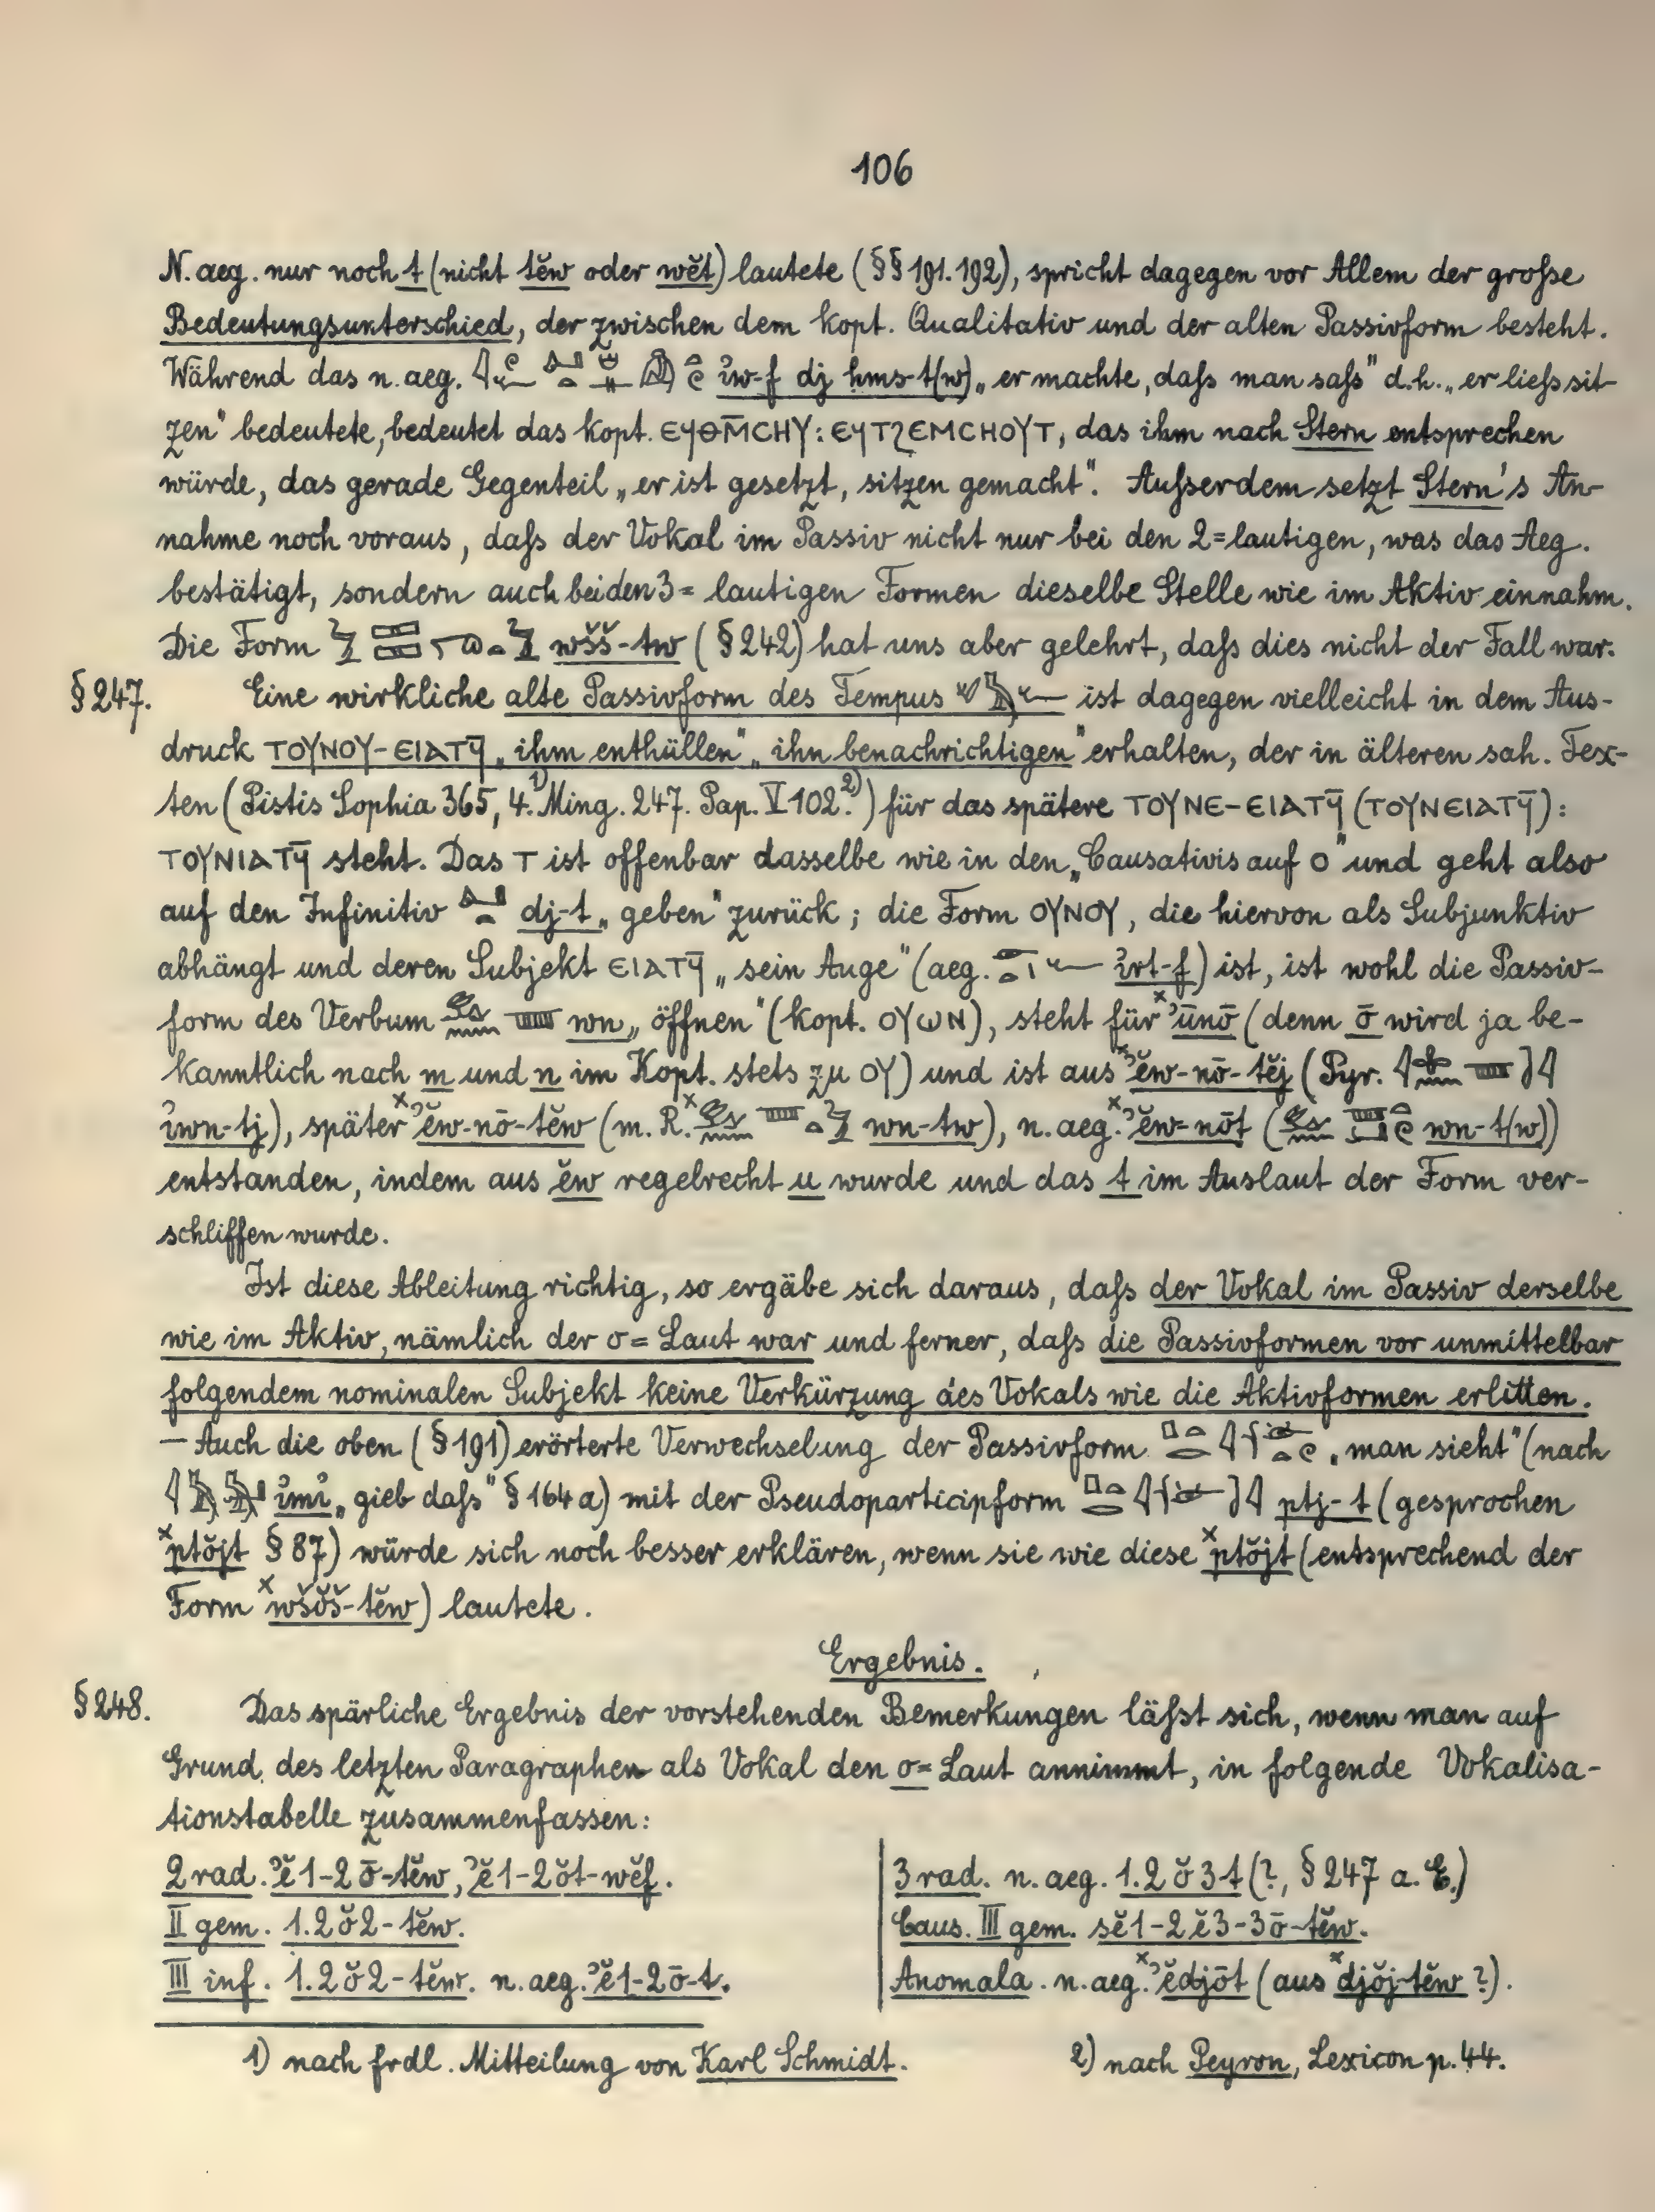 106
N. aeg. nur noch t (nicht tĕw oder wĕt) lautete (§§ 191. 192), spricht dagegen vor Allem der große
Bedeutungsunterschied, der zwischen dem kopt. Qualitativ und der alten Passivform besteht.
Während das n. aeg. ỉw-f dj ḥms-t(w) „er machte, daß man saß" d.h. „er ließ sit-
zen" bedeutete, bedeutet das kopt. ⲉϥⲑⲙ̄ⲥⲏⲩ: ⲉϥⲧϩⲉⲙⲥⲏⲟⲩⲧ, das ihm nach Stern entsprechen
würde, das gerade Gegenteil „er ist gesetzt, sitzen gemacht". Außerdem setzt Stern's An-
nahme noch voraus, daß der Vokal im Passiv nicht nur bei den 2=lautigen, was das Aeg.
bestätigt, sondern auch bei den 3=lautigen Formen dieselbe Stelle wie im Aktiv einnahm.
Die Form wšš-tw (§ 242) hat uns aber gelehrt, daß dies nicht der Fall war.
§ 247. Eine wirkliche alte Passivform des Tempus ist dagegen vielleicht in dem Aus-
druck ⲧⲟⲩⲛⲟⲩ-ⲉⲓⲁⲧϥ̄ „ihm enthüllen" „ihn benachrichtigen" erhalten, der in älteren sah. Tex-
ten (Pistis Sophia 365, 4.¹⁾ Ming. 247. Pap. V 102.²⁾) für das spätere ⲧⲟⲩⲛⲉ-ⲉⲓⲁⲧϥ̄ (ⲧⲟⲩⲛⲉⲓⲁⲧϥ̄):
ⲧⲟⲩⲛⲓⲁⲧϥ̄ steht. Das ⲧ ist offenbar dasselbe wie in den „Causativis auf o" und geht also
auf den Infinitiv dj-t „geben" zurück; die Form ⲟⲩⲛⲟⲩ, die hiervon als Subjunktiv
abhängt und deren Subjekt ⲉⲓⲁⲧϥ̄ „sein Auge" (aeg. ỉrt-f) ist, ist wohl die Passiv-
form des Verbum wn „öffnen" (kopt. ⲟⲩⲱⲛ), steht für ˣʾūnō (denn ō wird ja be-
kanntlich nach m und n im Kopt. stets zu ⲟⲩ) und ist aus ˣʾĕw-nō-tĕj (Pyr.
ỉwn-tj), später ˣʾĕw-nō-tĕw (m. R. ˣ wn-tw), n. aeg. ˣʾĕw-nōt (wn-t(w))
entstanden, indem aus ĕw regelrecht u wurde und das t im Auslaut der Form ver-
schliffen wurde.
Ist diese Ableitung richtig, so ergäbe sich daraus, daß der Vokal im Passiv derselbe
wie im Aktiv, nämlich der o=Laut war und ferner, daß die Passivformen vor unmittelbar
folgendem nominalen Subjekt keine Verkürzung des Vokals wie die Aktivformen erlitten.
— Auch die oben (§ 191) erörterte Verwechselung der Passivform „man sieht" (nach
ỉmỉ „gieb daß" § 164 a) mit der Pseudoparticipform ptj-t (gesprochen
ˣptŏjt § 87) würde sich noch besser erklären, wenn sie wie diese ˣptŏjt (entsprechend der
Form ˣwšŏš-tĕw) lautete.
Ergebnis.
§ 248. Das spärliche Ergebnis der vorstehenden Bemerkungen läßt sich, wenn man auf
Grund des letzten Paragraphen als Vokal den o=Laut annimmt, in folgende Vokalisa-
tionstabelle zusammenfassen:
2 rad. ʾĕ1-2ō-tĕw, ʾĕ1-2ŏt-wĕf.
II gem. 1.2ŏ2-tĕw.
III inf. 1.2ŏ2-tĕw. n. aeg. ʾĕ1-2ō-t.
3 rad. n. aeg. 1.2ŏ3t (?, § 247 a. E.)
Caus. III gem. sĕ1-2ĕ3-3ō-tĕw.
Anomala. n. aeg. ˣʾĕdjōt (aus ˣdjŏj-tĕw ?).
1) nach frdl. Mitteilung von Karl Schmidt.
2) nach Peyron, Lexicon p. 44.